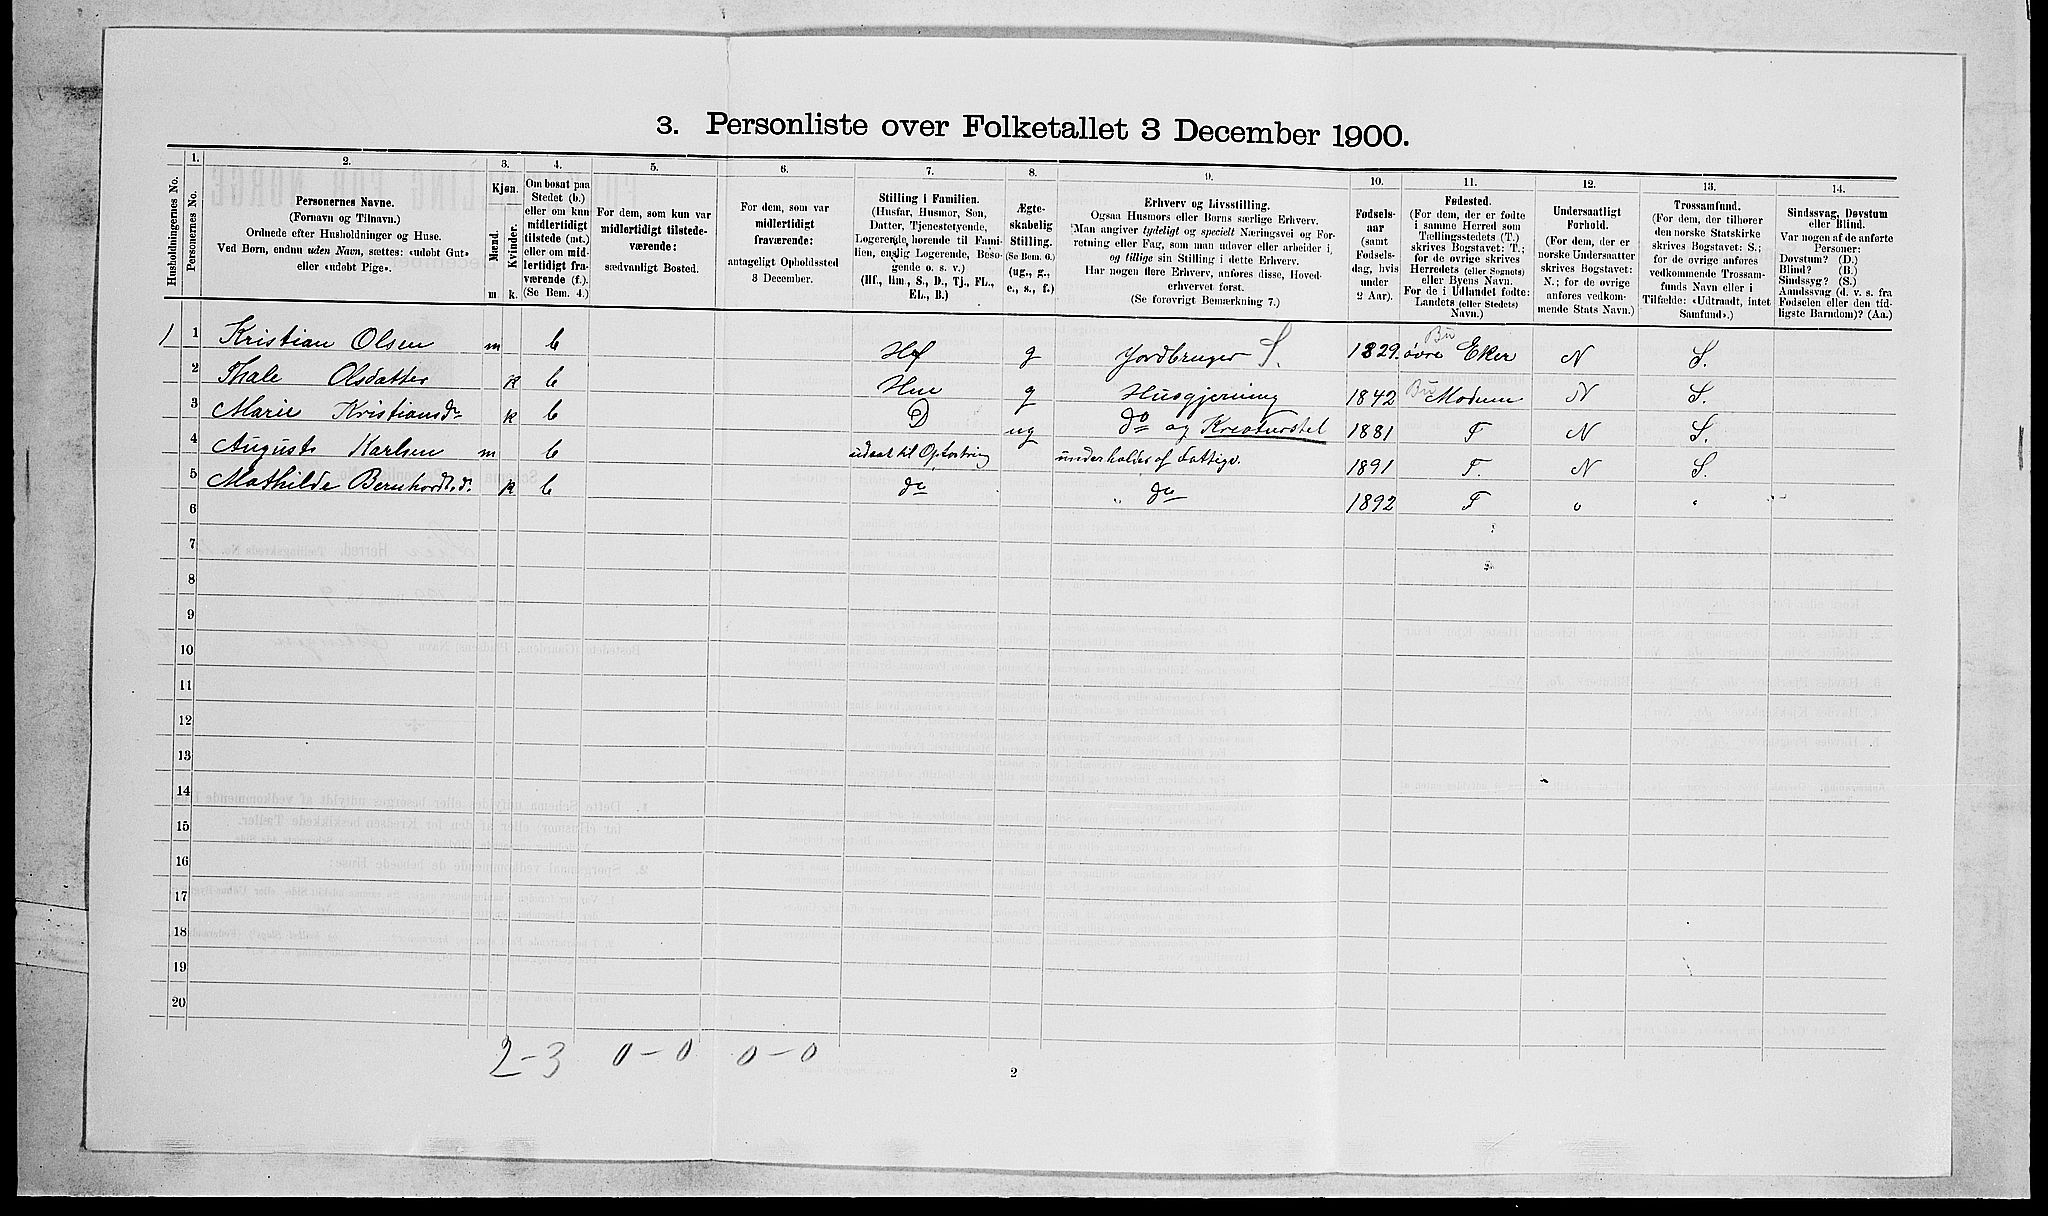 3. Personliste over Folketallet 3 December 1900.
Husholdningernes No.
1.
Personernes No.
2.
Personernes Navne.
(Fornavn og Tilnavn.)
Ordnede efter Husholdninger og Huse.
Ved Børn, endnu uden Navn, sættes: «udøbt Gut»
eller «udøbt Pige».
3.
Kjøn.
Mænd.
Kvinder.
m k.
4.
Om bosat paa
Stedet (b.)
eller om kun
midlertidigt
tilstede (mt.)
eller om mid-
lertidigt fra-
værende (f.).
(Se Bem. 4.)
5.
For dem, som kun var
midlertidigt tilstede-
værende:
sædvanligt Bosted.
6.
For dem, som var
midlertidigt
fraværende:
antageligt Opholdssted
3 December.
7.
Stilling i Familien.
(Husfar, Husmor, Søn,
Datter, Tjenestetyende,
Logerende, hørende til Fami-
lien, enslig Logerende, Besø-
gende o. s. v.)
(Hf., Hm., S., D., Tj., FL.,
EL., B.)
8.
Ægte-
skabelig
Stilling.
(Se Bem. 6.)
(ug., g.,
e., s., f.)
9.
Erhverv og Livsstilling.
Ogsaa Husmors eller Børns særlige Erhverv.
Man angiver tydeligt og specielt Næringsvei og For-
retning eller Fag, som man udøver eller arbeider i,
og tillige sin Stilling i dette Erhverv.
Har nogen flere Erhverv, anføres disse, Hoved-
erhvervet først.
(Se forøvrigt Bemærkning 7.)
10.
Fødsels-
aar
(samt
Fødsels-
dag, hvis
under
2 Aar).
11.
Fødested.
(For dem, der er fødte
i samme Herred som
Tællingsstedets (T.)
skrives Bogstavet: T.;
for de øvrige skrives
Herredets (eller Sognets)
eller Byens Navn.
For de i Udlandet fødte:
Landets (eller Stedets)
Navn.)
12.
Undersaatligt
Forhold.
(For dem, der er
norske Undersaatter
skrives Bogstavet:
N.; for de øvrige
anføres vedkom-
mende Stats Navn.)
13.
Trossamfund.
(For dem, der tilhører
den norske Statskirke
skrives Bogstavet: S.;
for de øvrige anføres
vedkommende Trossam-
funds Navn eller i
Tilfælde: «Udtraadt, intet
Samfund».)
14.
Sindssvag, Døvstum
eller Blind.
Var nogen af de anførte
Personer:
Døvstum? (D.)
Blind? (B.)
Sindssyg? (S.)
Aandssvag (d. v. s. fra
Fødselen eller den tid-
ligste Barndom)? (Aa.)
1 1 Kristian Olsen m b Hf g Jordbruger S. 1829 Bu øvre Eker N S.
2 Thale Olsdatter k b Hm g Husgjerning 1842 Bu Modum N S.
3 Marie Kristiansdr k b D ug do og Kreaturstel 1881 T N S.
4 August Karlsen m b udsat til Opfostring underholdes af Fattigv. 1891 T. N S.
5 Mathilde Bernhardtsdr k b do " do 1892 T " "
6
7
8
9
10
11
12
13
14
15
16
17
18
19
20
2-3 0-0 0-0
2